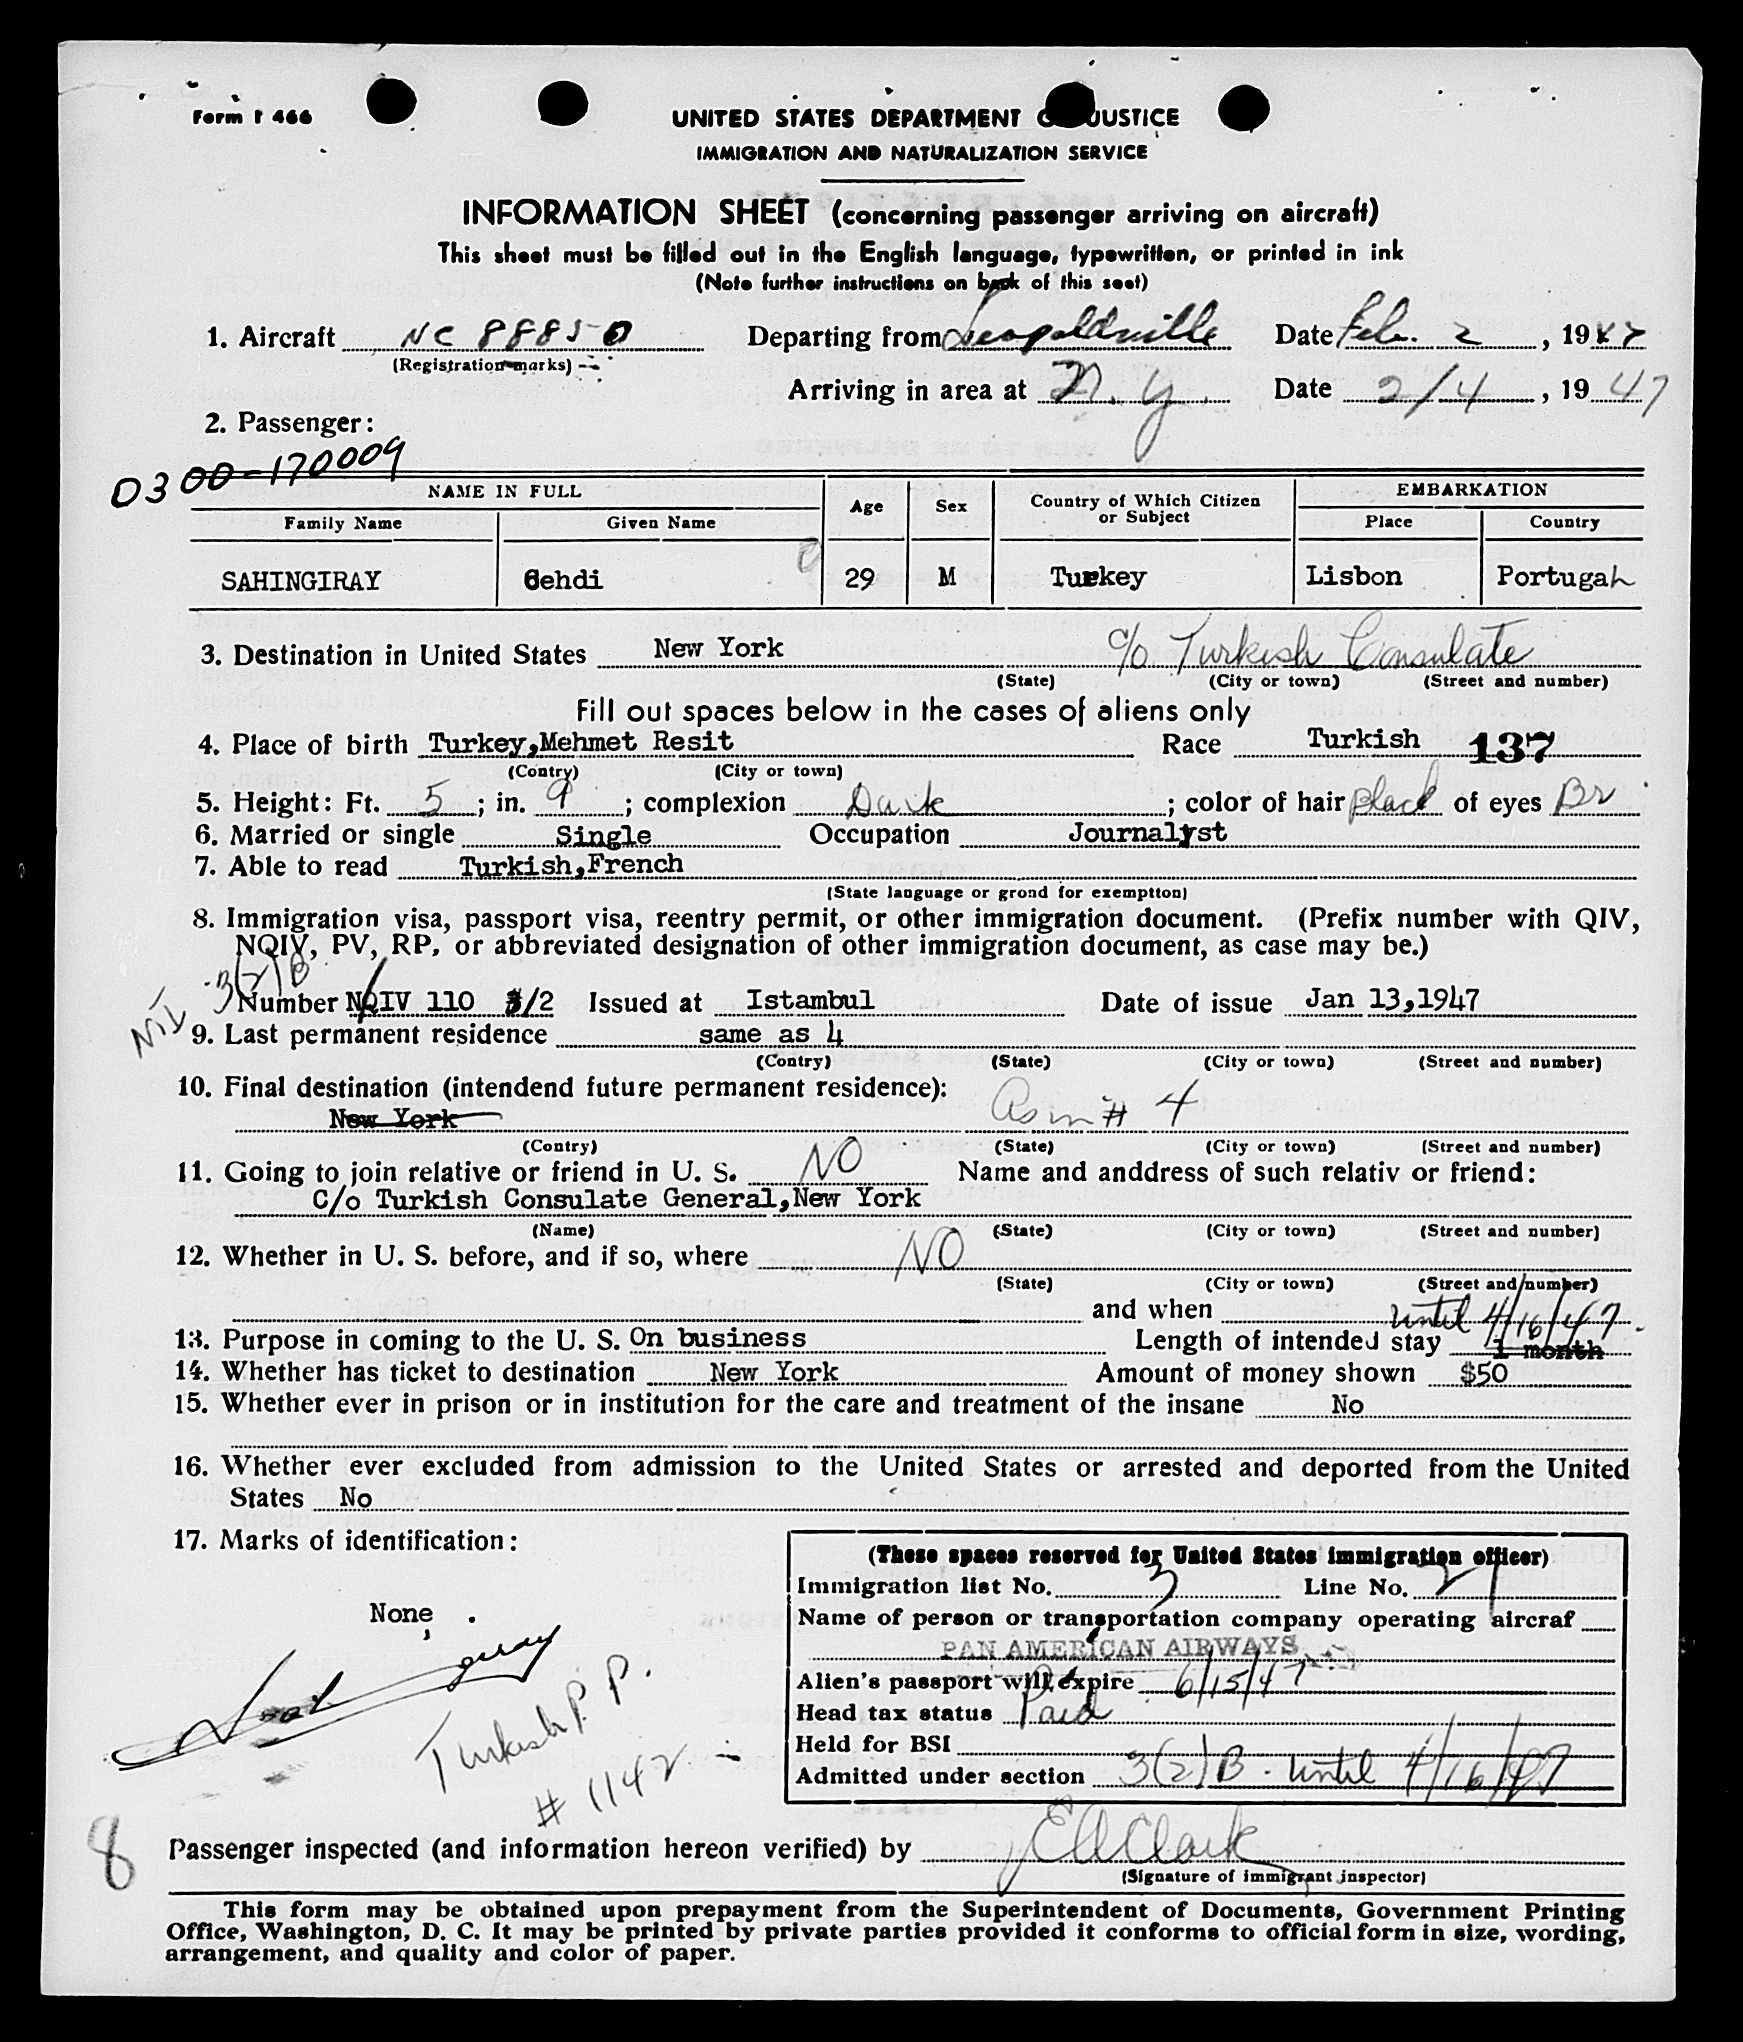 Form I 466
UNITED STATES DEPARTMENT OF JUSTICE
IMMIGRATION AND NATURALIZATION SERVICE
INFORMATION SHEET (concerning passenger arriving on aircraft)
This sheet must be filled out in the English language, typewritten, or printed in ink
(Note further instructions on back of this seet)
1. Aircraft NC 88850 Departing from Leopoldville Date Feb. 2, 1947
(Registration marks)
Arriving in area at N.Y. Date 2/4, 1947
2. Passenger:
0300-170009
NAME IN FULL Age Sex Country of Which Citizen or Subject EMBARKATION
Family Name Given Name Place Country
SAHINGIRAY Cehdi 29 M Turkey Lisbon Portugal
3. Destination in United States New York c/o Turkish Consulate
(State) (City or town) (Street and number)
Fill out spaces below in the cases of aliens only
4. Place of birth Turkey,Mehmet Resit Race Turkish 137
(Contry) (City or town)
5. Height: Ft. 5; in. 9; complexion Dark; color of hair black of eyes Br
6. Married or single Single Occupation Journalyst
7. Able to read Turkish,French
(State language or grond for exemptton)
8. Immigration visa, passport visa, reentry permit, or other immigration document. (Prefix number with QIV,
NQIV, PV, RP, or abbreviated designation of other immigration document, as case may be.)
3(2)B
Number NQIV 110 3/2 Issued at Istambul Date of issue Jan 13,1947
9. Last permanent residence same as 4
(Contry) (State) (City or town) (Street and number)
10. Final destination (intendend future permanent residence):
New York As in # 4
(Contry) (State) (City or town) (Street and number)
11. Going to join relative or friend in U. S. NO Name and anddress of such relativ or friend:
C/o Turkish Consulate General,New York
(Name) (State) (City or town) (Street and number)
12. Whether in U. S. before, and if so, where NO
(State) (City or town) (Street and number)
and when
until 4/16/47.
13. Purpose in coming to the U. S. On business Length of intended stay 1 month
14. Whether has ticket to destination New York Amount of money shown $50
15. Whether ever in prison or in institution for the care and treatment of the insane No
16. Whether ever excluded from admission to the United States or arrested and deported from the United
States No
17. Marks of identification:
None .
Turkish P.P.
# 1142
(These spaces reserved for United States immigration officer)
Immigration list No. 3 Line No. 21
Name of person or transportation company operating aircraf
PAN AMERICAN AIRWAYS
Alien's passport will expire 6/15/47
Head tax status Paid
Held for BSI
Admitted under section 3(2)B - until 4/16/47
8
Passenger inspected (and information hereon verified) by E A Clark
(Signature of immigrant inspector)
This form may be obtained upon prepayment from the Superintendent of Documents, Government Printing
Office, Washington, D. C. It may be printed by private parties provided it conforms to official form in size, wording,
arrangement, and quality and color of paper.